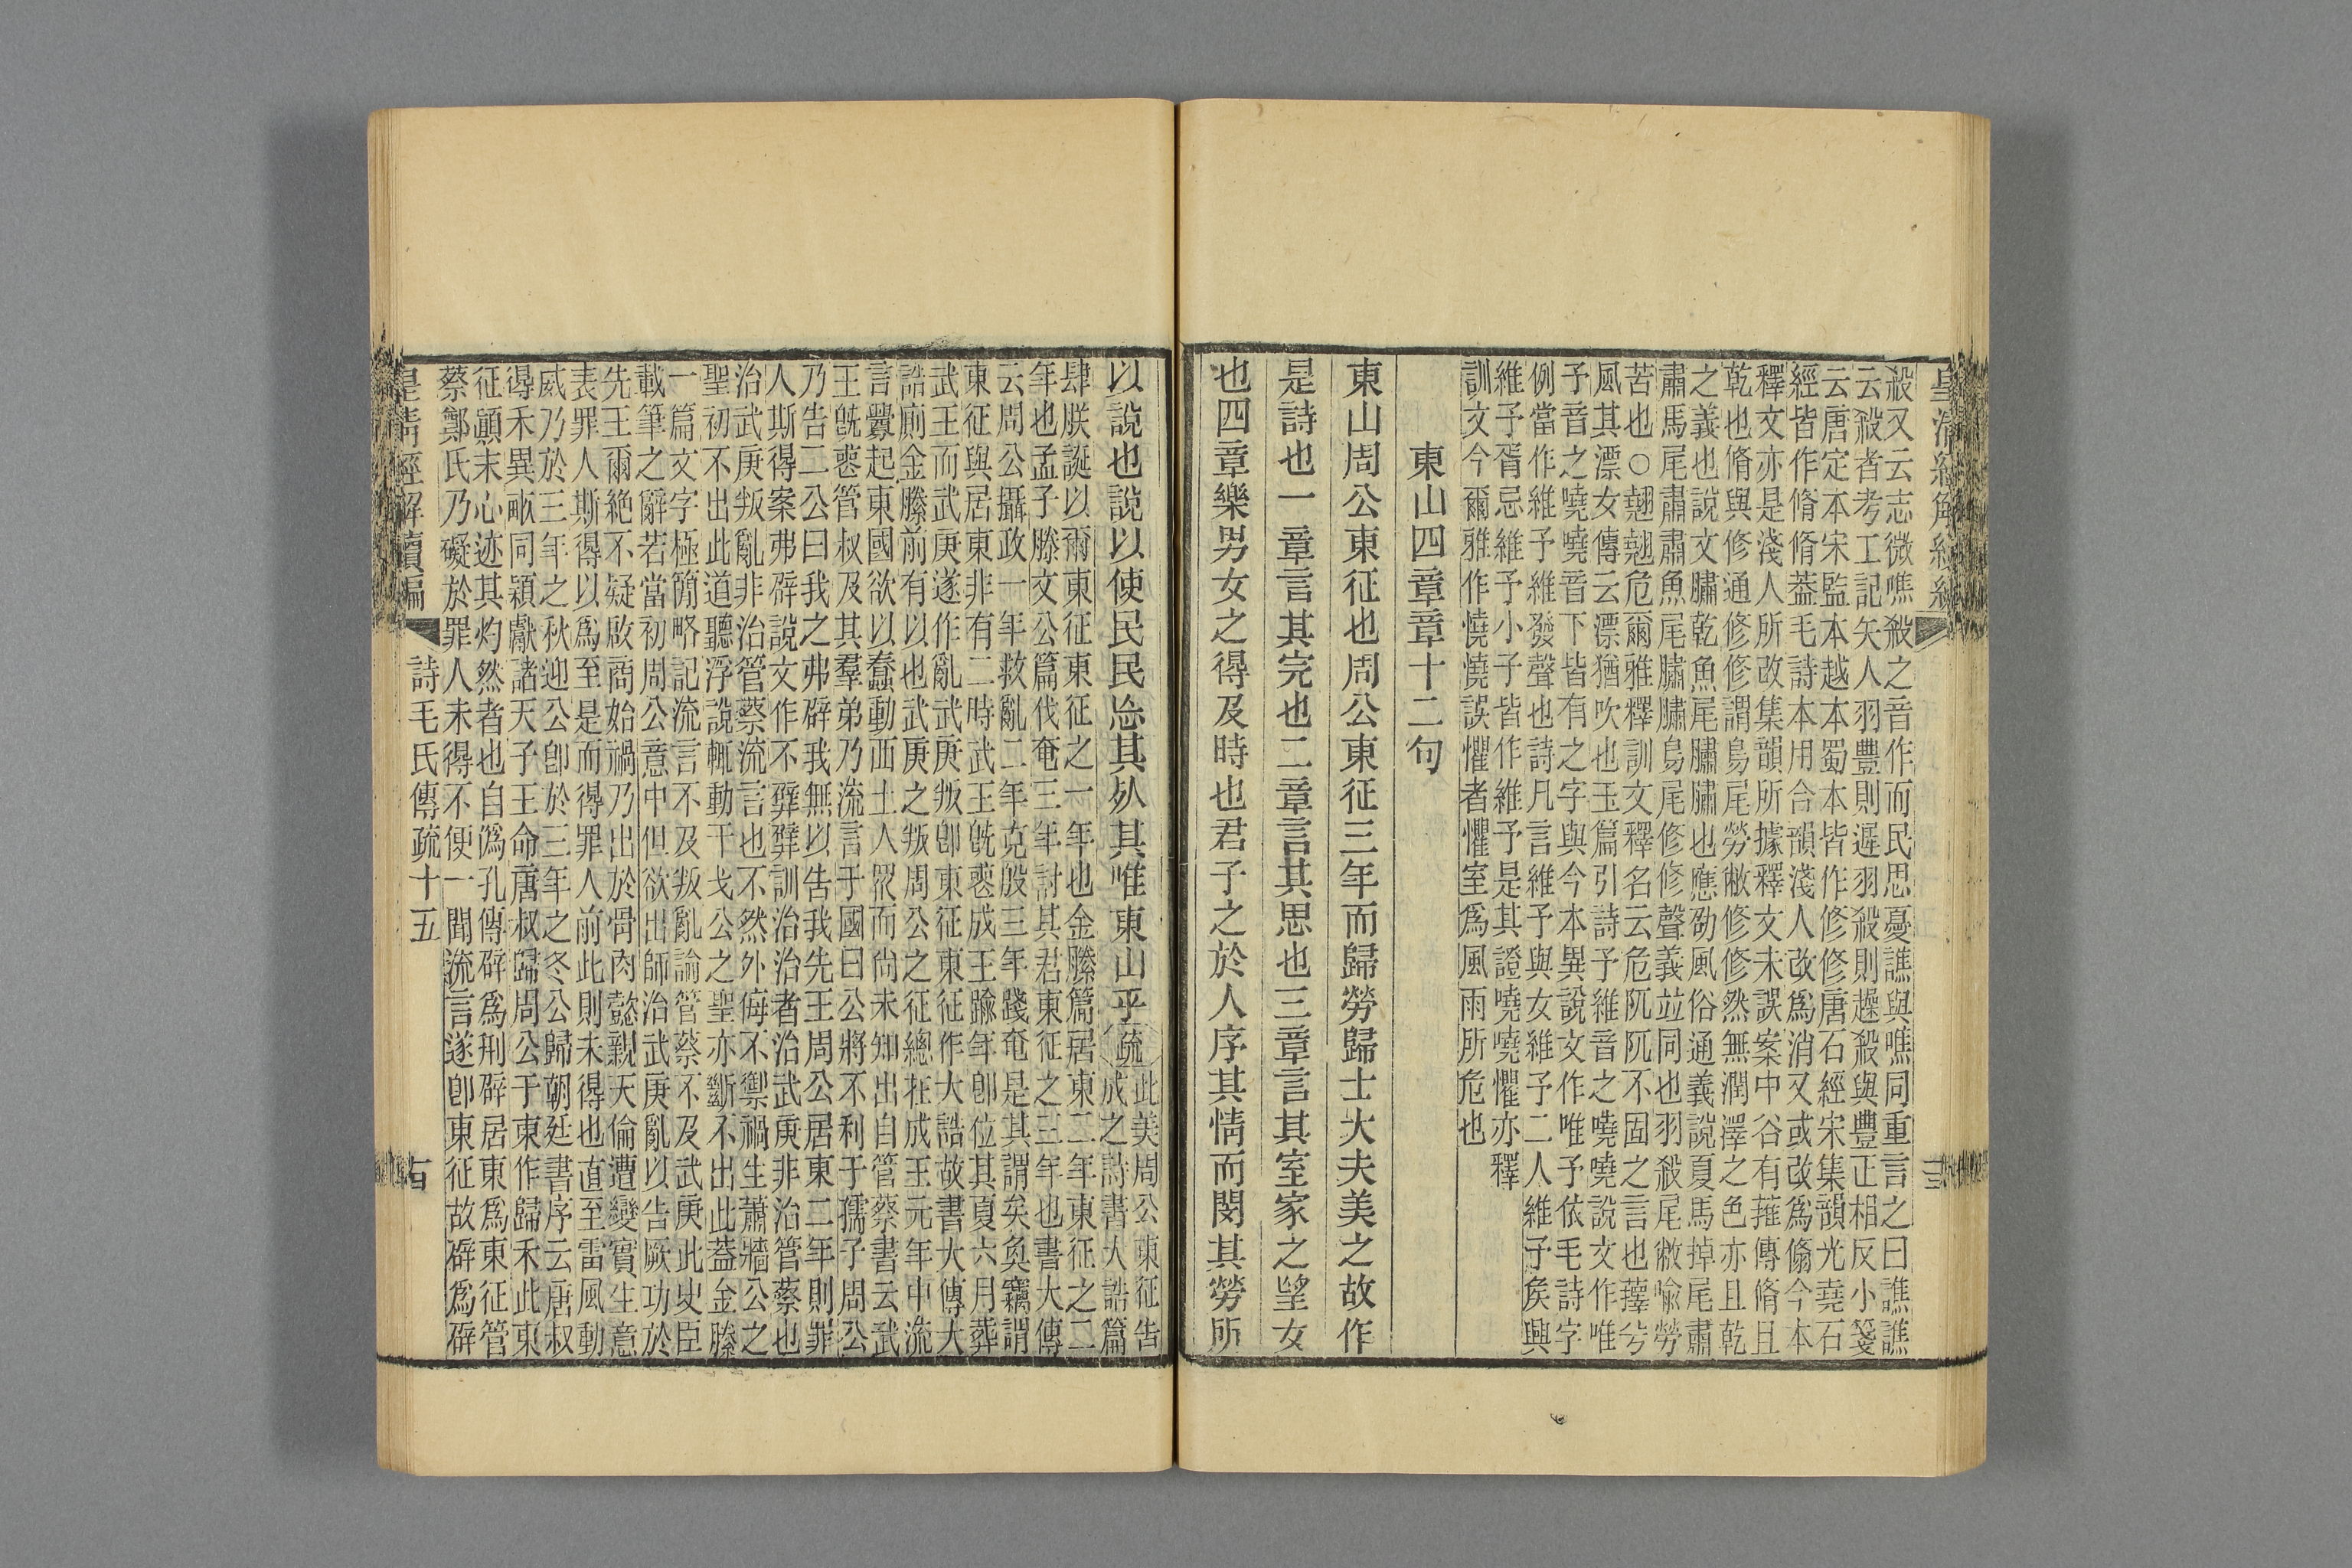 皇清經解續編
三
殺又云志微噍殺之音作而民思憂譙與噍同重言之曰譙譙
云殺者考工記矢人羽豐則遲羽殺則趮殺與豐正相反小箋
云唐定本宋監本越本蜀本皆作修修唐石經宋集韻光堯石
經皆作脩脩葢毛詩本用合韻淺人改爲消又或改爲翛今本
釋文亦是淺人所改集韻所據釋文未誤案中谷有蓷傳脩且
乾也脩與修通修修謂鳥尾勞敝修修然無潤澤之色亦且乾
之義也說文䐹乾魚尾䐹䐹也應劭風俗通義說夏馬掉尾肅
肅馬尾肅肅魚尾䐹䐹鳥尾修修聲義竝同也羽殺尾敝喻勞
苦也○翹翹危爾雅釋訓文釋名云危阢阢不固之言也蘀兮
風其漂女傳云漂猶吹也玉篇引詩予維音之嘵嘵說文作唯
予音之嘵嘵音下皆有之字與今本異說文作唯予依毛詩字
例當作維予維發聲也詩凡言維予與女維予二人維予矦興
維予胥忌維予小子皆作維予是其證嘵嘵懼亦釋
訓文今爾雅作憢憢誤懼者懼室爲風雨所危也
東山四章章十二句
東山周公東征也周公東征三年而歸勞歸士大夫美之故作
是詩也一章言其完也二章言其思也三章言其室家之望女
也四章樂男女之得及時也君子之於人序其情而閔其勞所
以說也說以使民民忘其死其唯東山乎疏
此美周公東征告
成之詩書大誥篇
肆朕誕以爾東征東征之一年也金縢篇居東二年東征之二
年也孟子滕文公篇伐奄三年討其君東征之三年也書大傳
云周公攝政一年救亂二年克殷三年踐奄是其謂矣奐竊謂
東征與居東非有二時武王旣薨成王踰年卽位其夏六月葬
武王而武庚遂作亂武庚叛卽東征東征作大誥故書大傳大
誥廁金縢前有以也武庚之叛周公之征總在成王元年中流
言釁起東國欲以蠢動西土人眾而尙未知出自管蔡書云武
王旣薨管叔及其羣弟乃流言于國曰公將不利于孺子周公
乃告二公曰我之弗辟我無以告我先王周公居東二年則罪
人斯得案弗辟說文作不㢸㢸訓治治者治武庚非治管蔡也
治武庚叛亂非治管蔡流言也不然外侮不禦禍生蕭牆公之
聖初不出此道聽浮說輒動干戈公之聖亦斷不出此葢金縢
一篇文字極簡略記流言不及叛亂論管蔡不及武庚此史臣
載筆之辭若當初周公意中但欲出師治武庚亂以告厥功於
先王爾絶不疑啟商始禍乃出於骨肉懿親天倫遭變實生意
表罪人斯得以爲至是而得罪人前此則未得也直至雷風動
威乃於三年之秋迎公卽於三年之冬公歸朝廷書序云唐叔
得禾異畝同穎獻諸天子王命唐叔歸周公于東作歸禾此東
征顚末心迹其灼然者也自僞孔傳辟爲刑辟居東爲東征管
蔡鄭氏乃礙於罪人未得不便一聞流言遂卽東征故辟爲辟
皇清經解續編
詩毛氏傳疏十五